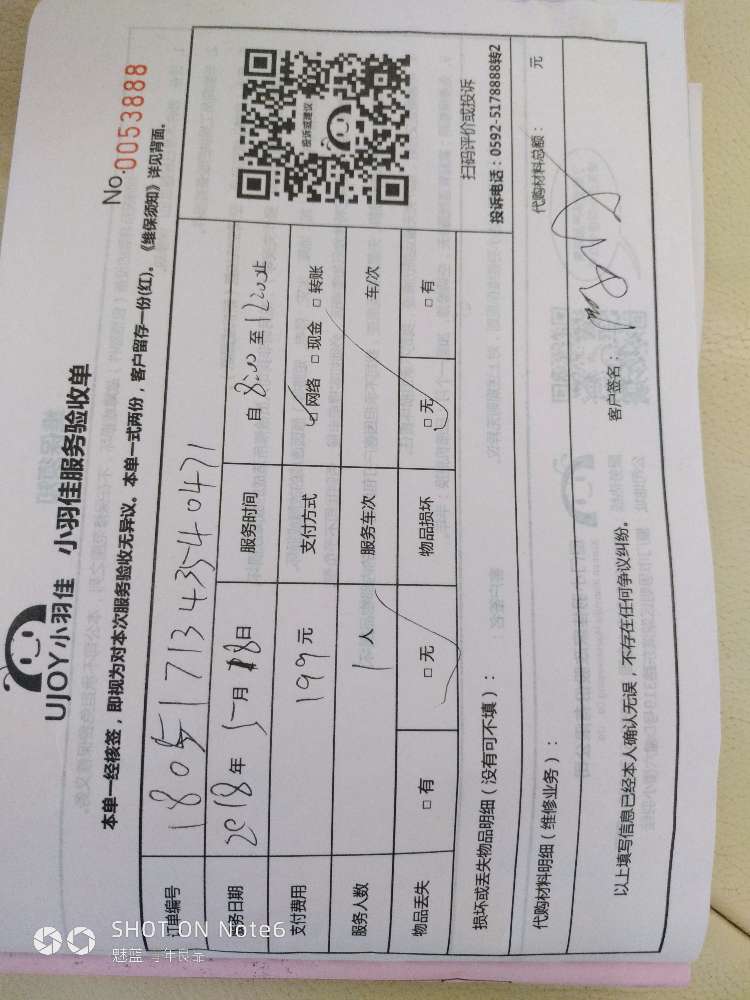 UJOY小羽佳 小羽佳服务验收单
No.0053888
本单一经核签，即视为对本次服务验收无异议。本单一式两份，客户留存一份(红)。《维保须知》详见背面。
订单编号 180517134354 0471
服务日期 2018年5月18日 服务时间 自 8:00 至 12:00止
支付费用 199元 支付方式 ☑网络 □现金 □转账
服务人数 1人 服务车次 车/次
物品丢失 □有 □无 物品损坏 □无 □有
投诉或建议
扫码评价或投诉
投诉电话：0592-5178888转2
损坏或丢失物品明细（没有可不填）：
代购材料明细（维修业务）： 代购材料总额： 元
以上填写信息已经本人确认无误，不存在任何争议纠纷。 客户签名：
SHOT ON Note6
魅蓝